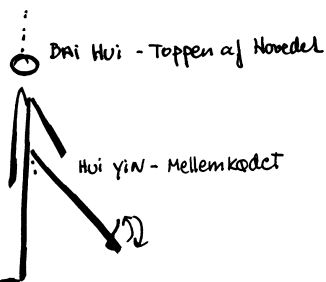 BAi Hui - Toppen af Hovedet
Hui YiN - Mellemkødet